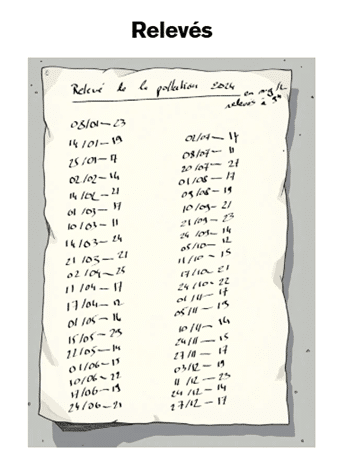 Relevés
Relevé de la pollution 2024 en mg/L
relevés à 9H
03/01 — 23
14/01 — 19
25/01 — 17
02/02 — 14
14/02 — 21
01/03 — 17
10/03 — 11
14/03 — 24
21/03 — 21
02/04 — 25
11/04 — 17
17/04 — 12
01/05 — 16
15/05 — 23
22/05 — 19
01/06 — 15
10/06 — 22
17/06 — 19
24/06 — 21
02/07 — 14
08/07 — 11
20/07 — 27
01/08 — 17
09/08 — 19
10/09 — 21
21/09 — 23
24/09 — 14
05/10 — 12
11/10 — 15
17/10 — 21
24/10 — 22
01/11 — 17
05/11 — 19
10/11 — 14
24/11 — 15
27/11 — 17
03/12 — 19
11/12 — 23
24/12 — 14
27/12 — 17